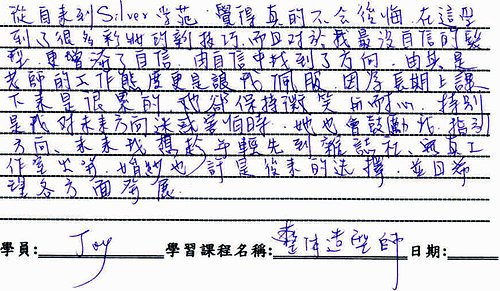 從自來到Silver學苑,覺得真的不会後悔,在這学
到了很多新的彩妝技巧,而且对於我最沒自信的髮
型,更增添了自信,由自信中找到了方向,由其是
老師的工作態度更是讓我佩服,因為長期上課
下來是很累的,她卻保持微笑和耐心,特別
是我对未來方向迷惑害怕時,她也會鼓勵我,指引
方向、未來我想趁年輕先到雜誌社、
作室 婚紗也許是後來的选擇,並且希
理各方面發展.
學員: Joy 學習課程名稱: 整体造型師 日期: